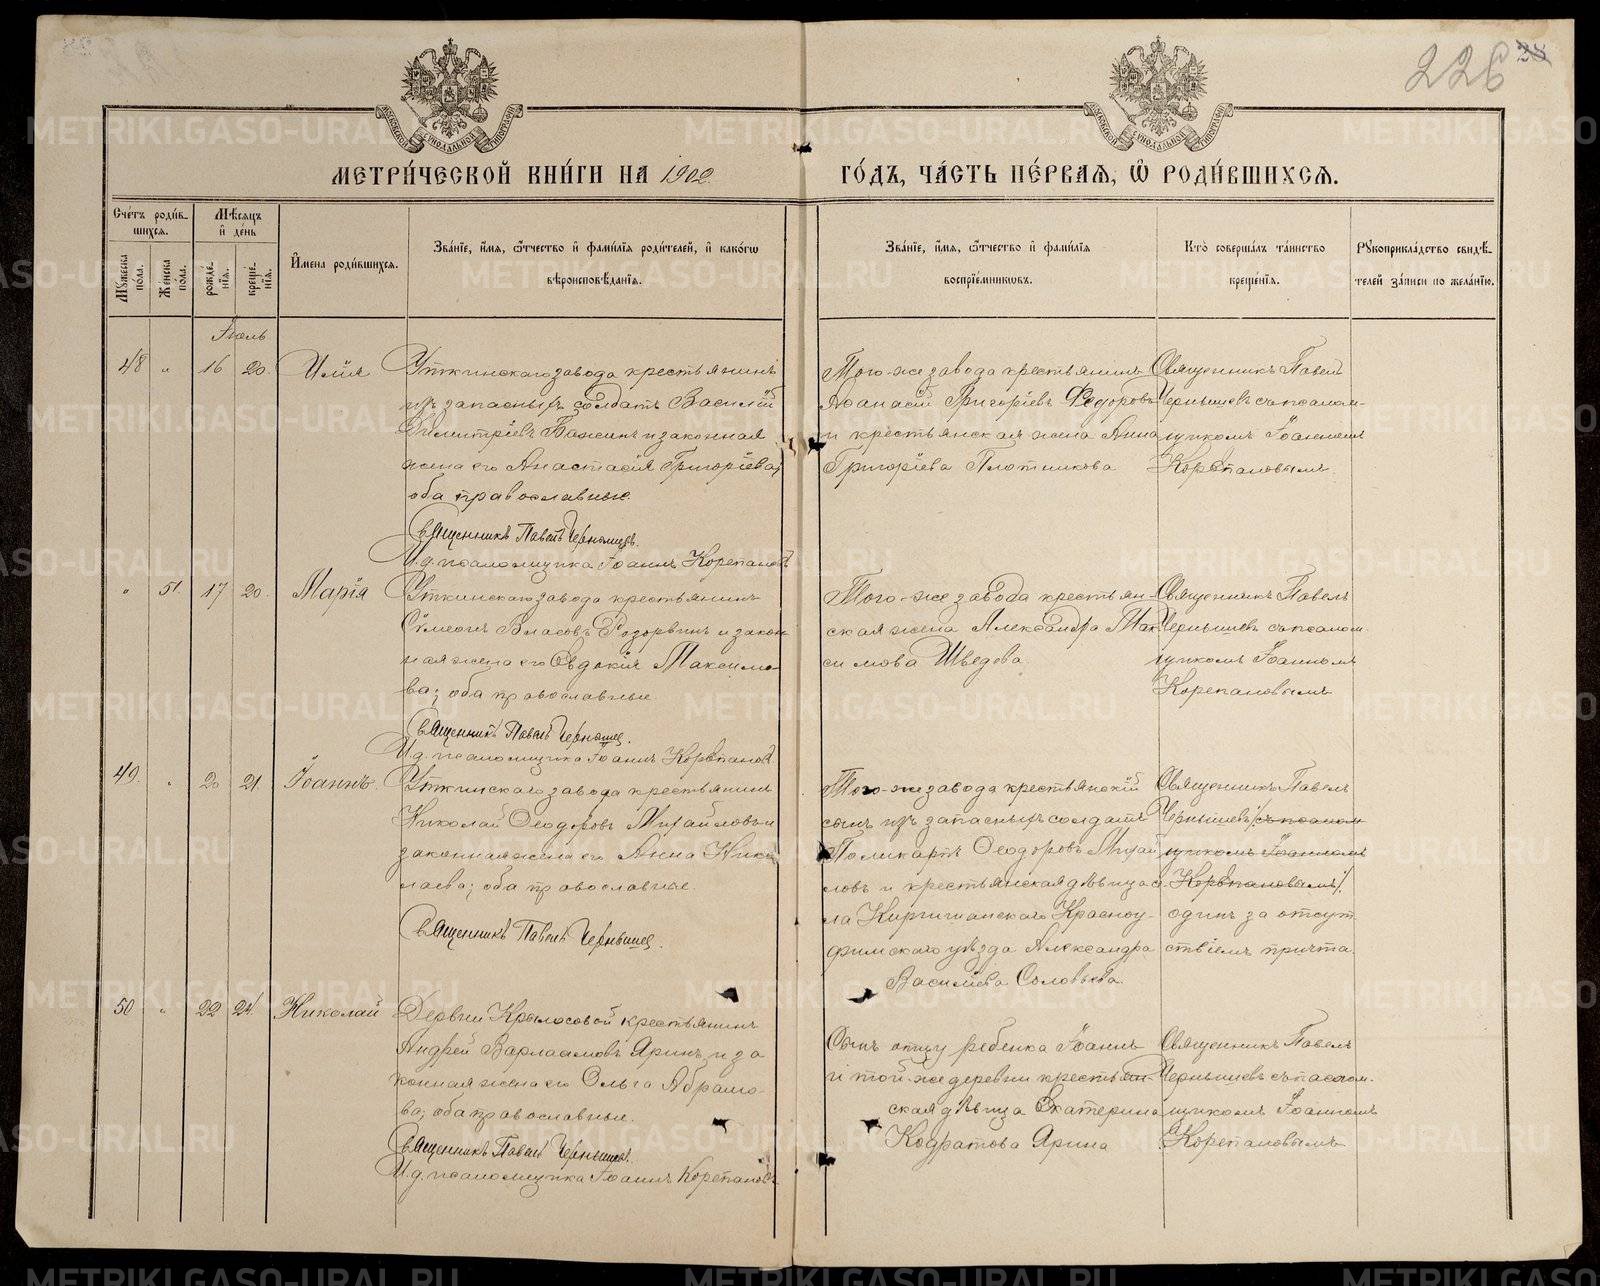 226 28
МЕТРИ́ЧЕСКОЙ КНИ́ГИ НА 1902 ГО́ДЪ, ЧА́СТЬ ПЕ́РВАЯ, Ѡ҆ РОДИ́ВШИХСЯ.
Сче́тъ роди́в-
шихся.
Му́жеска по́ла.
Же́нска по́ла.
Мѣ́сяцъ
и҆ де́нь
рожде-
нія.
креще-
нія.
И҆мена роди́вшихся.
Зва́ніе, и҆́мя, ѻ҆́тчество и҆ фами́лія роди́телей, и҆ како́гѡ
вѣроисповѣ́данія.
Зва́ніе, и҆́мя, ѻ҆́тчество и҆ фами́лія
воспріе́мниковъ.
Кто̀ соверша́лъ та́инство
креще́нія.
Рꙋкоприкла́дство свидѣ́-
телей за́писи по жела́нію.
Іюль
48 " 16 20 Илія
Уткинскаго завода крестьянинъ
изъ запасныхъ солдатъ Василій
Димитріевъ Бажинъ и законная
жена его Анастасія Григоріева;
оба православные.
Священникъ Павелъ Чернышевъ.
И. д. псаломщика Іоаннъ Корепановъ
Того-же завода крестьянинъ
Аѳанасій Григоріевъ Ѳедоровъ
и крестьянская жена Анна
Григоріева Плотникова
Священникъ Павелъ
Чернышевъ съ псалом-
щикомъ Іоанномъ
Корепановымъ.
" 51 17 20 Марія
Уткинскаго завода крестьянинъ
Сѵмеонъ Власовъ Розорвинъ и закон-
ная жена его Евдокія Максимо-
ва; оба православные.
Священникъ Павелъ Чернышев.
И. д. псаломщика Іоаннъ Корепановъ
Того-же завода крестьян-
ская жена Александра Мак-
симова Шведова
Священникъ Павелъ
Чернышевъ съ псалом-
щикомъ Іоанномъ
Корепановымъ
49. " 20 21 Іоаннъ
Уткинскаго завода крестьянинъ
Николай Ѳеодоровъ Михайловъ и
законная жена его Анна Нико-
лаева; оба православные.
Священникъ Павелъ Чернышев.
Того-же завода крестьянскій
сынъ изъ запасныхъ солдатъ
Поликарпъ Ѳеодоровъ Михай-
ловъ и крестьянская дѣвица с-
ла Киргишанскаго Красноу-
фимскаго уѣзда Александра
Василіева Соловьева.
Священникъ Павелъ
Чернышевъ /съ псалом-
щикомъ Іоанномъ
Корепановымъ/.
одинъ за отсут-
ствіемъ причта.
50 " 22 24 Николай
Деревни Крылосовой крестьянинъ
Андрей Варлаамовъ Яринъ и за-
конная жена его Ольга Абрамо-
ва; оба православные.
Священникъ Павелъ Чернышев.
И. д. псаломщика Іоаннъ Корепановъ
Сынъ отцу ребенка Іоаннъ
и той-же деревни крестьян-
ская дѣвица Екатерина
Кодратова Ярина
Священникъ Павелъ
Чернышевъ съ псалом-
щикомъ Іоанномъ
Корепановымъ
METRIKI.GASO-URAL.RU